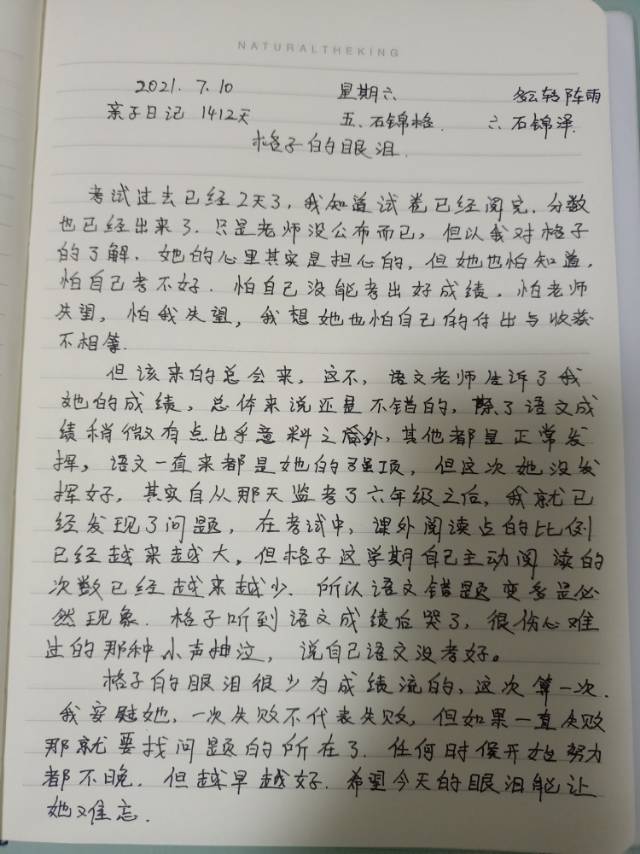 NATURALTHEKING
2021. 7. 10 星期六 多云转阵雨
亲子日记 1412天 五. 石锦格. 六. 石锦泽.
格子的眼泪.
考试过去已经2天了, 我知道试卷已经阅完. 分数
也已经出来了. 只是老师没公布而已, 但以我对格子
的了解. 她的心里其实是担心的, 但她也怕知道,
怕自己考不好. 怕自己没能考出好成绩. 怕老师
失望, 怕我失望, 我想她也怕自己的付出与收获
不相等.
但该来的总会来, 这不, 语文老师告诉了我
她的成绩, 总体来说还是不错的, 除了语文成
绩稍微有点出乎意料之外, 其他都是正常发
挥, 语文一直来都是她的强项, 但这次她没发
挥好, 其实自从那天监考了六年级之后, 我就已
经发现了问题, 在考试中, 课外阅读占的比例
已经越来越大, 但格子这学期自己主动阅读的
次数已经越来越少. 所以语文错题变多是必
然现象. 格子听到语文成绩后哭了, 很伤心难
过的那种小声抽泣, 说自己语文没考好。
格子的眼泪很少为成绩流的, 这次算一次.
我安慰她, 一次失败不代表失败, 但如果一直失败
那就要找问题的所在了. 任何时候开始努力
都不晚. 但越早越好. 希望今天的眼泪能让
她难忘.